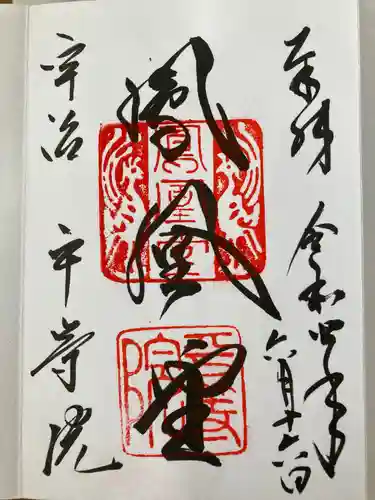 奉拝
令和四年
六月十六日
鳳凰堂
鳳凰堂
平等院
宇治
平等院